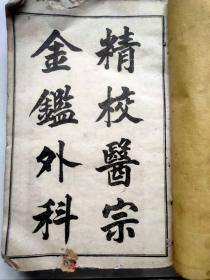 精校醫宗
金鑑外科